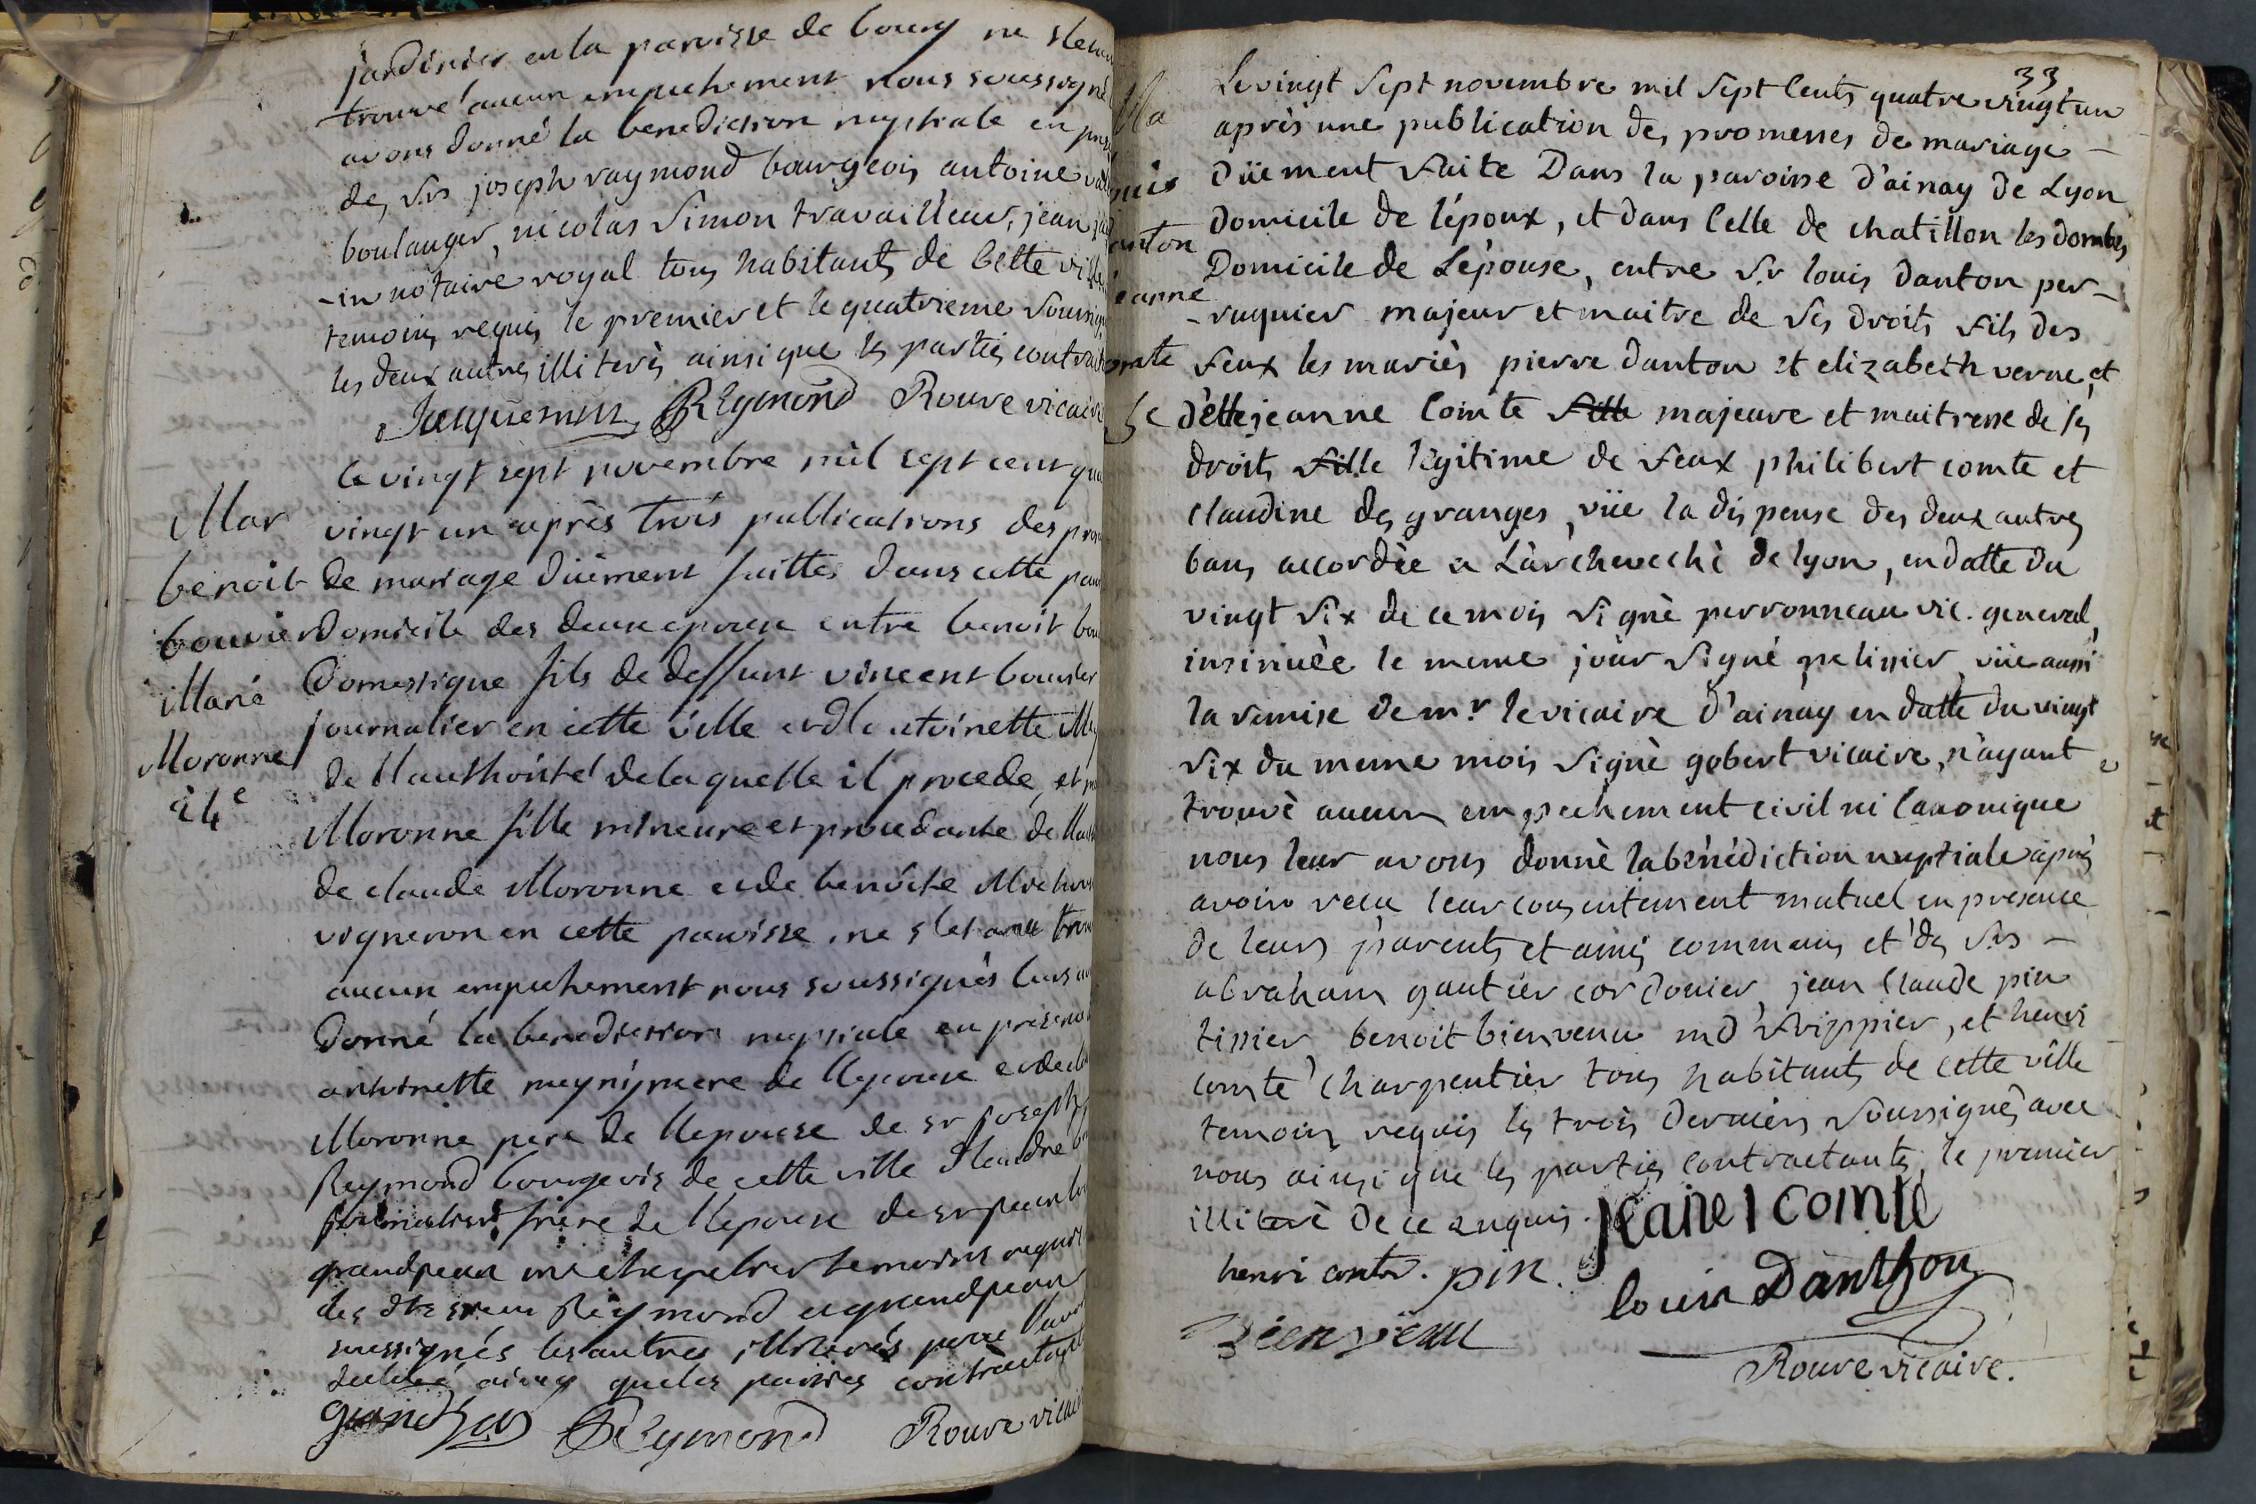 jardinier en la paroisse de bourg ne s'etant
trouvé aucun empechement nous soussigné
avons donné la benediction nuptiale en pres
des srs joseph raymond bourgeois antoine
boulanger, nicolas Simon travailleur, jean
-in notaire royal tous habitants de cette ville
temoins requis le premier et le quatrieme soussig
les deux autres illiterès ainsi que les parties contract
Jacquemin REymond Rouve vicaire
Le vingt sept novembre mil sept cent qua
vingt un après trois publications des pro
de mariage düement faittes dans cette par
Domicile des deux epoux entre benoit bou
Domestique fils de deffunt vincent bouvier
journalier en cette ville et d'entoinette
de l'authorité de laquelle il procede, et
Moronne fille mineure et procedante de l'auth
de claude Moronne et de benoite
vigneron en cette paroisse. ne s'etant trou
aucun empechement nous soussignés leurs av
Donné la benediction nuptiale en presence
antoinette mere de l'epoux et de cl
Moronne pere de l'epouse de sr joseph
Reymond bourgeois de cette ville
journalier frere de l'epouse de sr
grandjean md chapelier temoins requis
les dts srs Reymond et grandjean
soussignés les autres illiterés pour
ainsy que les parties contractantes
grandjean REymond Rouve vicaire
Mar
benoit
bouvier
Marie
Moronne
24e
33
Ma
ouis
anton
eanne
omte
Le vingt sept novembre mil sept cents quatre vingt un
après une publication des promesses de mariage -
Düement faite Dans la paroisse d'ainay de Lyon
Domicile de l'époux, et dans celle de chatillon les dombes
Domicile de L'épouse, entre sr louis danton per-
-ruquier majeur et maitre de ses droits fils des
feux les mariès pierre danton et elizabeth verne, et
d'elle jeanne Comte fille majeure et maitresse de ses
droits fille légitime de feux philibert comte et
claudine des granges, vüe la dispense des deux autres
bans accordèe a L'archevechè de lyon, en datte du
vingt six de ce mois signè perronneau vic. general,
insinuèe le meme jour signé pelissier, vüe aussi
la remise de mr. le vicaire d'ainay en datte du vingt
six du meme mois signè gobert vicaire, n'ayant
trouvè aucun empechement civil ni Canonique
nous leur avons donnè la bénédiction nuptiale après
avoir reçu leur consentement mutuel en presence
de leurs parents et amis communs et des srs -
abraham gautier cordonier, jean claude pin
tissier, benoit bienvenu md frippier, et henri
comte charpentier tous habitants de cette ville
temoins requis les trois derniers soussignès avec
nous ainsi que les parties contractantes, le premier
illiterè de ce enquis.
jeane comte
henri comte. pin.
louis Danthon
Bienvenu
Rouve vicaire.